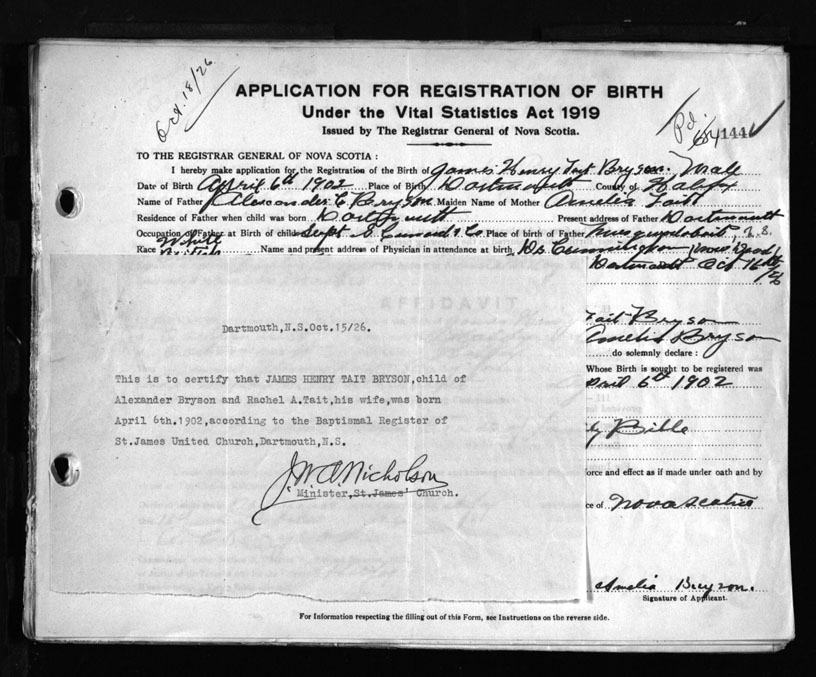 Oct. 18/26
APPLICATION FOR REGISTRATION OF BIRTH
Under the Vital Statistics Act 1919
Issued by The Registrar General of Nova Scotia.
Pd.
641441
TO THE REGISTRAR GENERAL OF NOVA SCOTIA :
I hereby make application for the Registration of the Birth of James Henry Tait Bryson. Male
Date of Birth April 6th 1902 Place of Birth Dartmouth County of Halifax
Name of Father Alexander C Bryson Maiden Name of Mother Amelia Tait
Residence of Father when child was born Dartmouth Present address of Father Dartmouth
Occupation of Father at Birth of child Supt S Cunard & Co. Place of Father of Birth Musquodoboit, N.S.
Race White British Name and present address of Physician in attendance at birth Dr Cunningham (now dead)
Dartmouth Oct 16th/26
AFFIDAVIT
Dartmouth, N.S. Oct. 15/26.
Tait Bryson
Amelia Bryson
do solemnly declare :
This is to certify that JAMES HENRY TAIT BRYSON, child of
Whose Birth is sought to be registered was
Alexander Bryson and Rachel A. Tait, his wife, was born
April 6th 1902
April 6th. 1902, according to the Baptismal Register of
Bible
St. James United Church, Dartmouth, N.S.
force and effect as if made under oath and by
J.W.A. Nicholson
Minister, St. James' Church.
ce of Nova Scotia
Amelia Bryson.
Signature of Applicant.
For Information respecting the filling out of this Form, see Instructions on the reverse side.